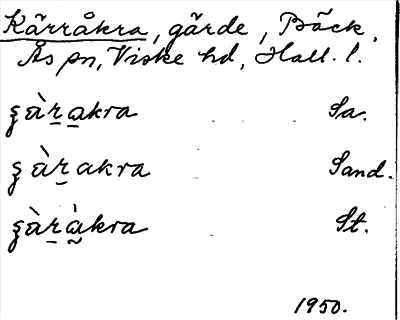 Kärråkra, gärde, Bäck,
Ås sn, Viske hd, Hall. l.
ʂàr̲a̲kra Sa.
ʂàr̲akra Sand.
ʂàr̲à̰kra St.
1950.